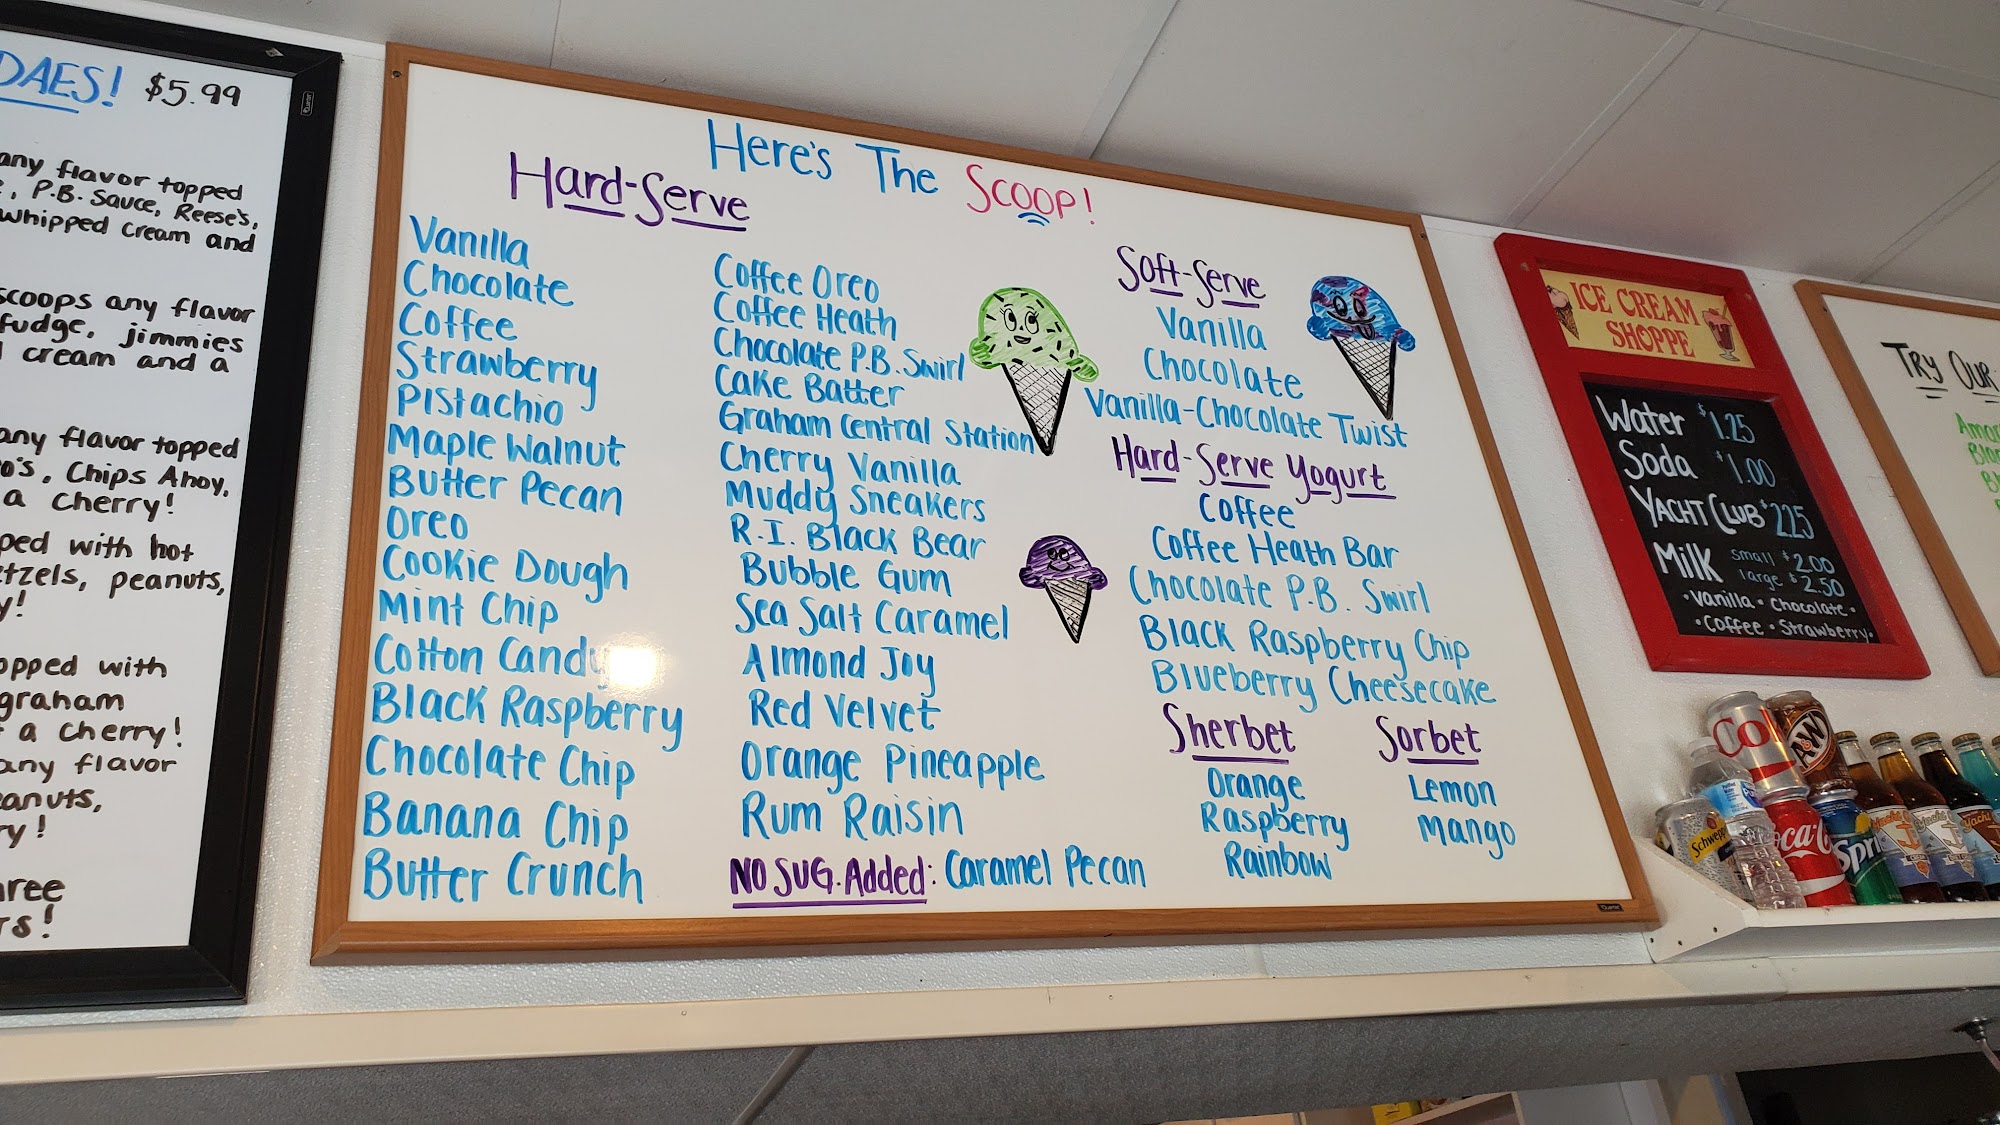 DAES! $5.99
any flavor topped
P.B. Sauce, Reese's,
whipped cream and
scoops any flavor
fudge, jimmies
cream and a
any flavor topped
o's, Chips Ahoy,
a cherry!
ped with hot
etzels, peanuts,
y!
opped with
graham
a cherry!
any flavor
eanuts,
ry!
hree
rs!
Here's The Scoop!
Hard-Serve
Vanilla
Chocolate
Coffee
Strawberry
Pistachio
Maple Walnut
Butter Pecan
Oreo
Cookie Dough
Mint Chip
Cotton Candy
Black Raspberry
Chocolate Chip
Banana Chip
Butter Crunch
Coffee Oreo
Coffee Heath
Chocolate P.B. Swirl
Cake Batter
Graham Central Station
Cherry Vanilla
Muddy Sneakers
R.I. Black Bear
Bubble Gum
Sea Salt Caramel
Almond Joy
Red Velvet
Orange Pineapple
Rum Raisin
No Sug. Added: Caramel Pecan
Soft-Serve
Vanilla
Chocolate
Vanilla-Chocolate Twist
Hard-Serve Yogurt
Coffee
Coffee Heath Bar
Chocolate P.B. Swirl
Black Raspberry Chip
Blueberry Cheesecake
Sherbet
Orange
Raspberry
Rainbow
Sorbet
Lemon
Mango
ICE CREAM
SHOPPE
Water $1.25
Soda $1.00
Yacht Club $2.25
Milk small $2.00
large $2.50
• Vanilla • Chocolate •
• Coffee • Strawberry •
Try Our
Co
A&W
Schwepp
oca-C
Spri
Yacht